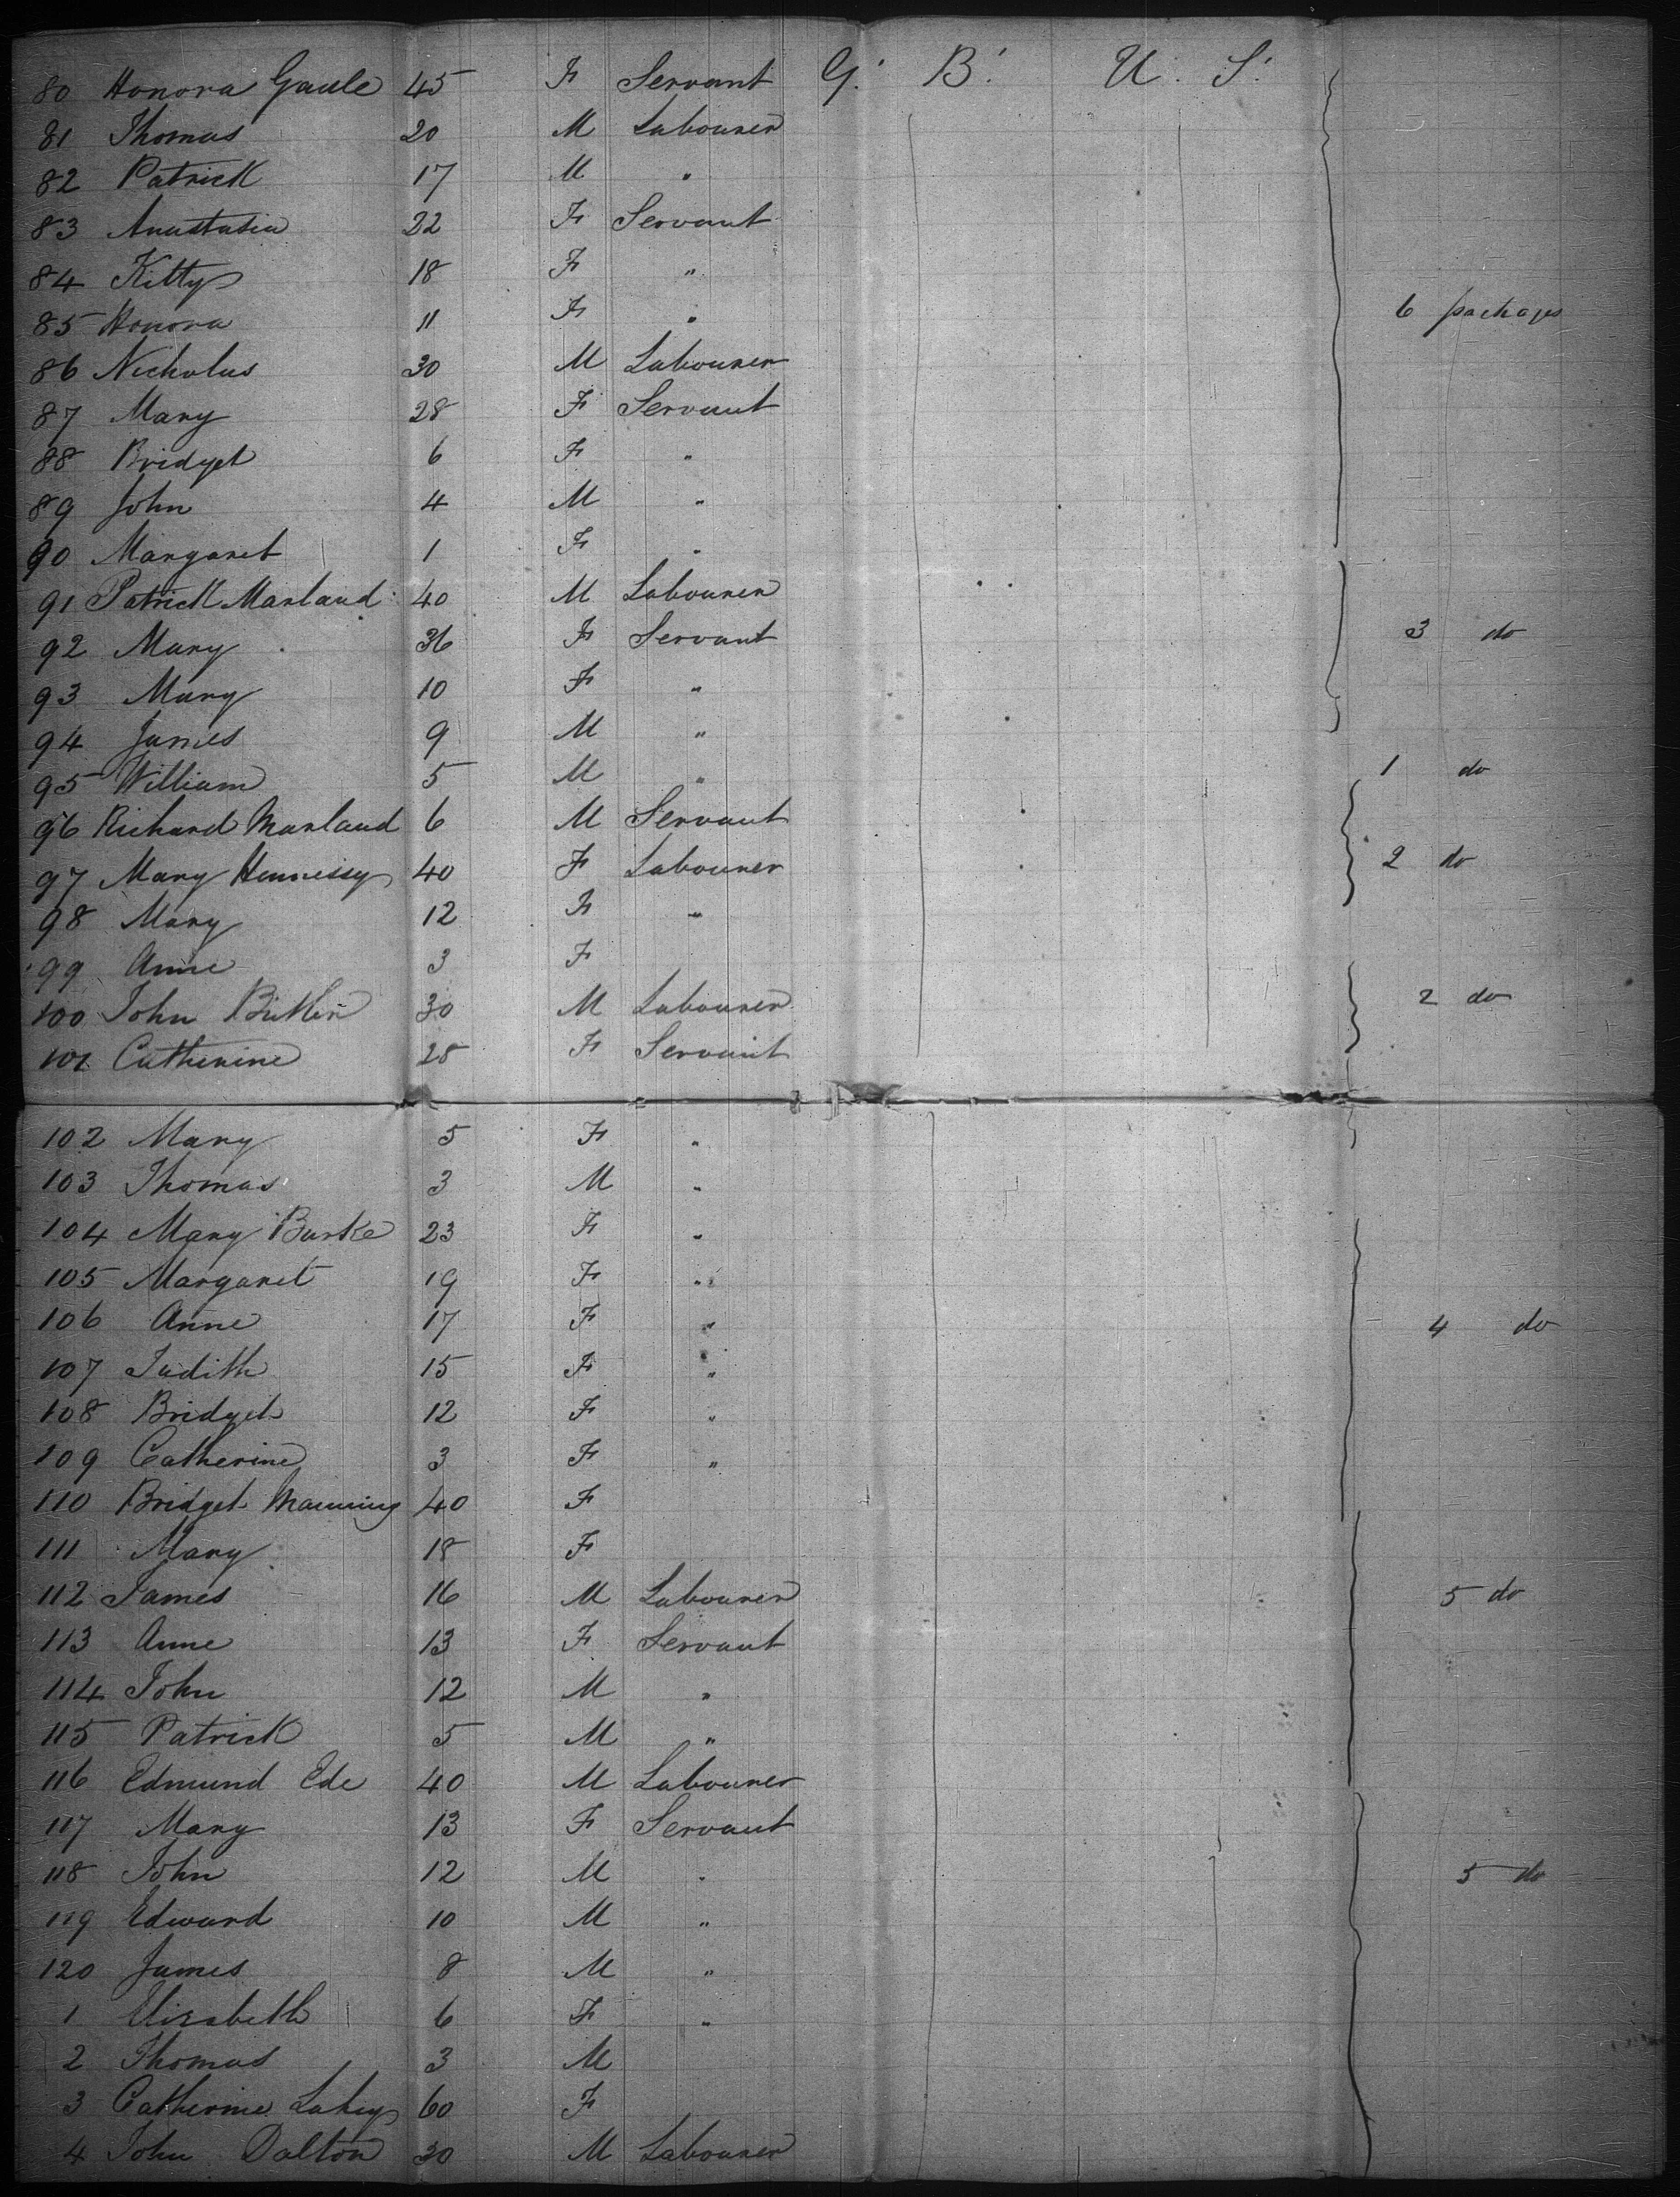 80 Honora Gaule 45 F Servant G. B. U. S.
81 Thomas 20 M Labourer
82 Patrick 17 M "
83 Anastasia 22 F Servant
84 Kitty 18 F "
85 Honora 11 F " 6 packages
86 Nicholas 30 M Labourer
87 Mary 28 F Servant
88 Bridget 6 F "
89 John 4 M "
90 Margaret 1 F "
91 Patrick Marland 40 M Labourer
92 Mary 36 F Servant 3 do
93 Mary 10 F "
94 James 9 M "
95 William 5 M " 1 do
96 Richard Marland 6 M Servant
97 Mary Hennessy 40 F Labourer 2 do
98 Mary 12 F "
99 Anne 3 F
100 John Butler 30 M Labourer 2 do
101 Catherine 28 F Servant
102 Mary 5 F "
103 Thomas 3 M "
104 Mary Burke 23 F "
105 Margaret 19 F "
106 Anne 17 F " 4 do
107 Judith 15 F "
108 Bridget 12 F "
109 Catherine 3 F "
110 Bridget Manning 40 F
111 Mary 18 F
112 James 16 M Labourer 5 do
113 Anne 13 F Servant
114 John 12 M "
115 Patrick 5 M "
116 Edmund Ede 40 M Labourer
117 Mary 13 F Servant
118 John 12 M " 5 do
119 Edward 10 M "
120 James 8 M "
1 Elizabeth 6 F "
2 Thomas 3 M
3 Catherine Lahey 60 F
4 John Dalton 30 M Labourer